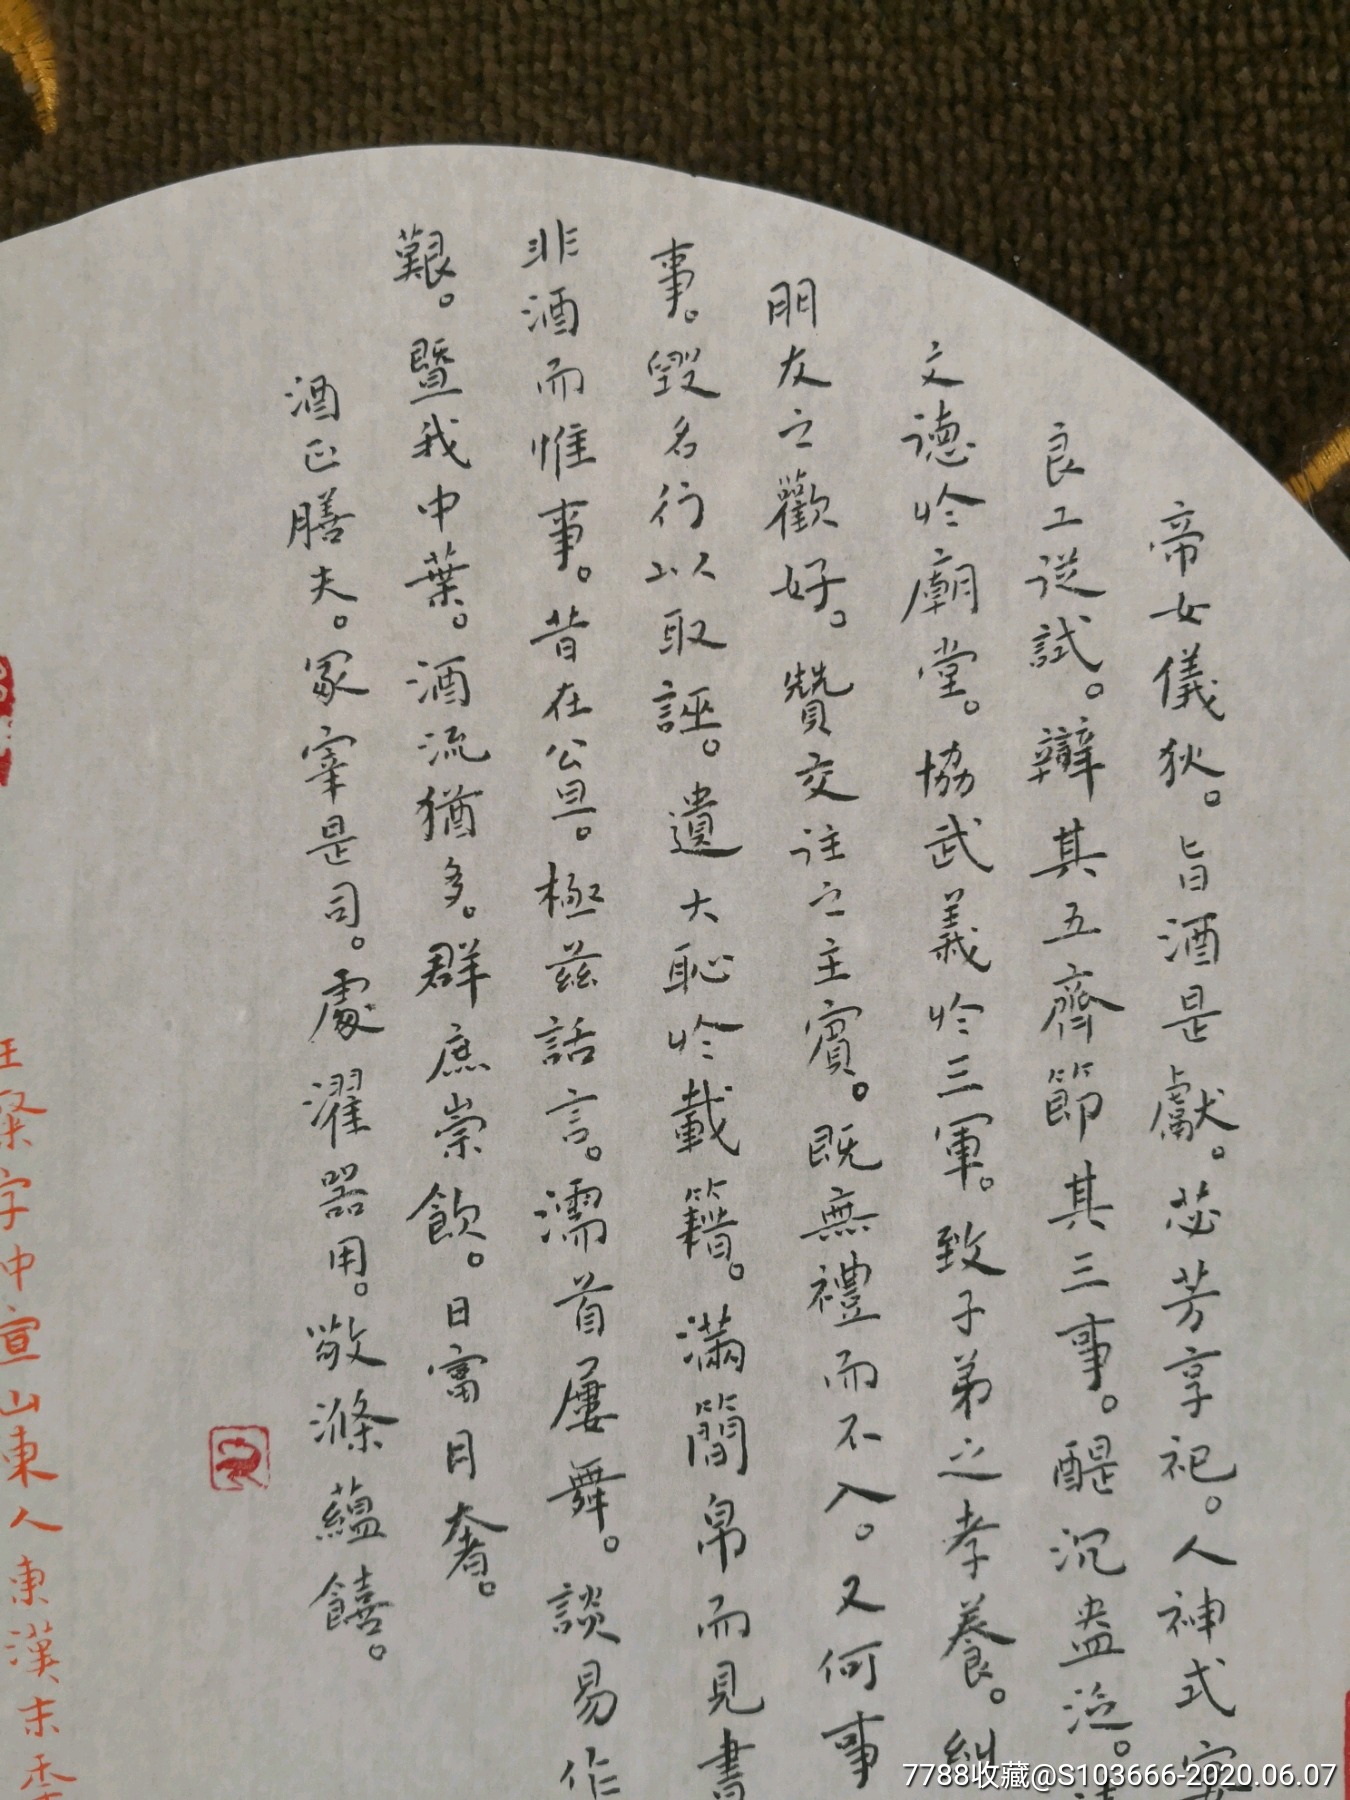 帝女儀狄。旨酒是獻。苾芳享祀。人神式宴
良工從試。辯其五齊節其三事。醍沉盎泛。清
文德於廟堂。協武義於三軍。致子弟之孝養。糾
朋友之歡好。贊交往之主賓。既無禮而不入。又何事
事。毀名行以取誣。遺大恥於載籍。滿簡帛而見書
非酒而惟事。昔在公旦。極茲話言。濡首屢舞。談易作
艱。暨我中葉。酒流猶多。群庶崇飲。日富月奢。
酒正膳夫。冢宰是司。處濯器用。敬滌蘊饎。
王粲字中宣山東人東漢末季
7788收藏@S103666-2020.06.07